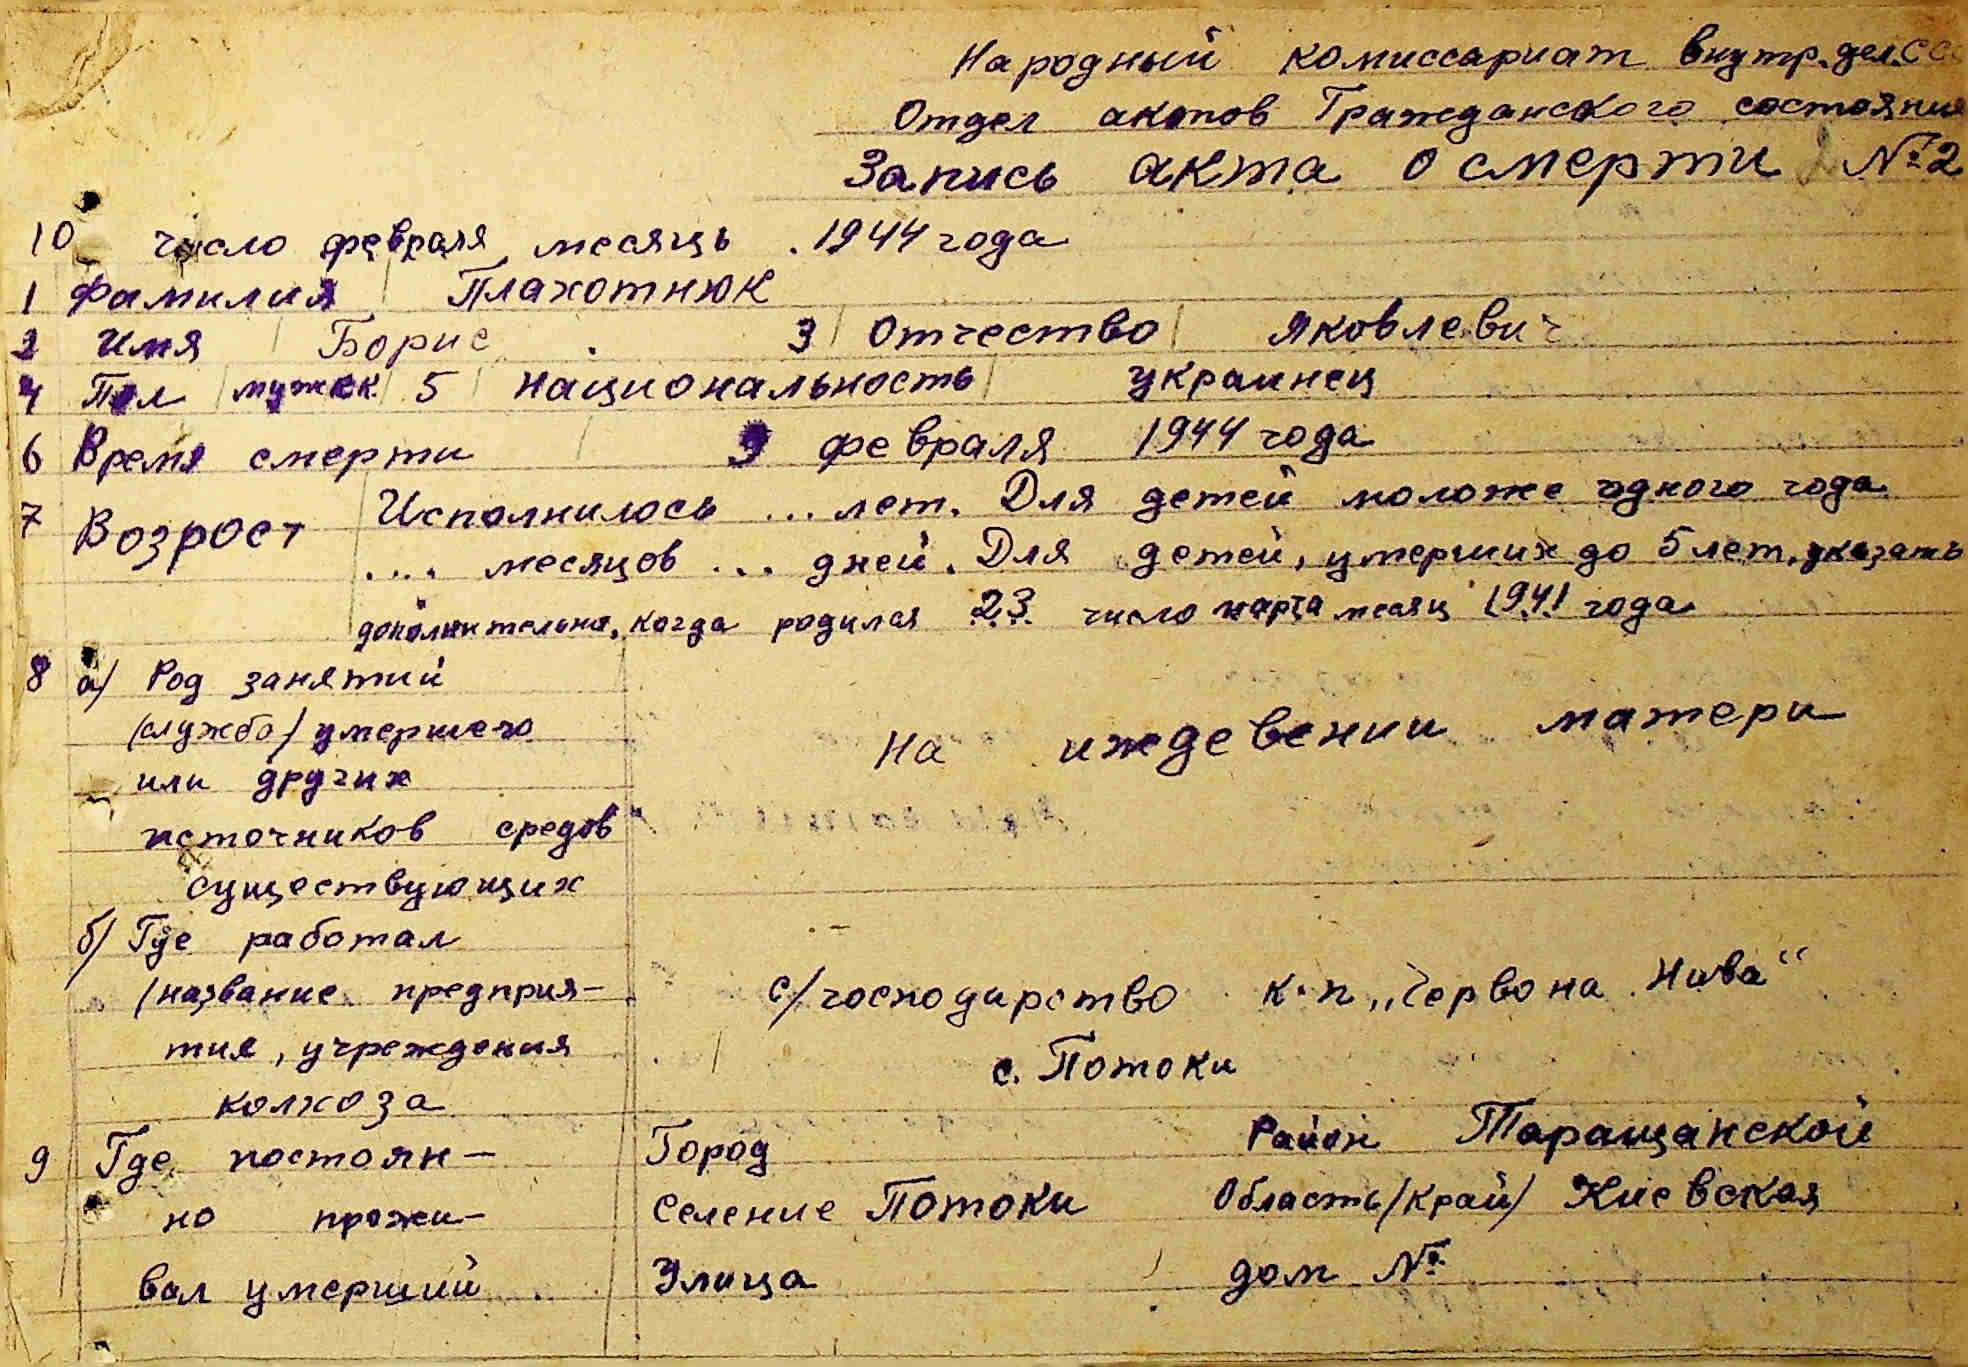 Народный комиссариат внутр. дел. СС
Отдел актов Гражданского состояния
Запись акта о смерти №2
10 число февраля месяць . 1944 года
1 Фамилия Плахотнюк
2 Имя Борис . 3 Отчество Яковлевич
4 Пол мужск. 5 национальность украинец
6 Время смерти 9 февраля 1944 года
7 Возрост Исполнилось ... лет. Для детей моложе одного года
.... месяцов ... дней. Для детей, умерших до 5 лет, указать
дополнительно, когда родился 23 число марта месяц 1941 года
8 а/ Род занятий
/служба/ умершего
на иждевении матери
или других
источников средов
существующих
б/ Где работал
/название предприя-
с/господарство к-п „Червона Нива“
тия, учреждения
с. Потоки
колхоза
9 Где постоян- Город Район Таращанской
но прожи- Селение Потоки Область/край/ Киевская
вал умерший Улица дом №